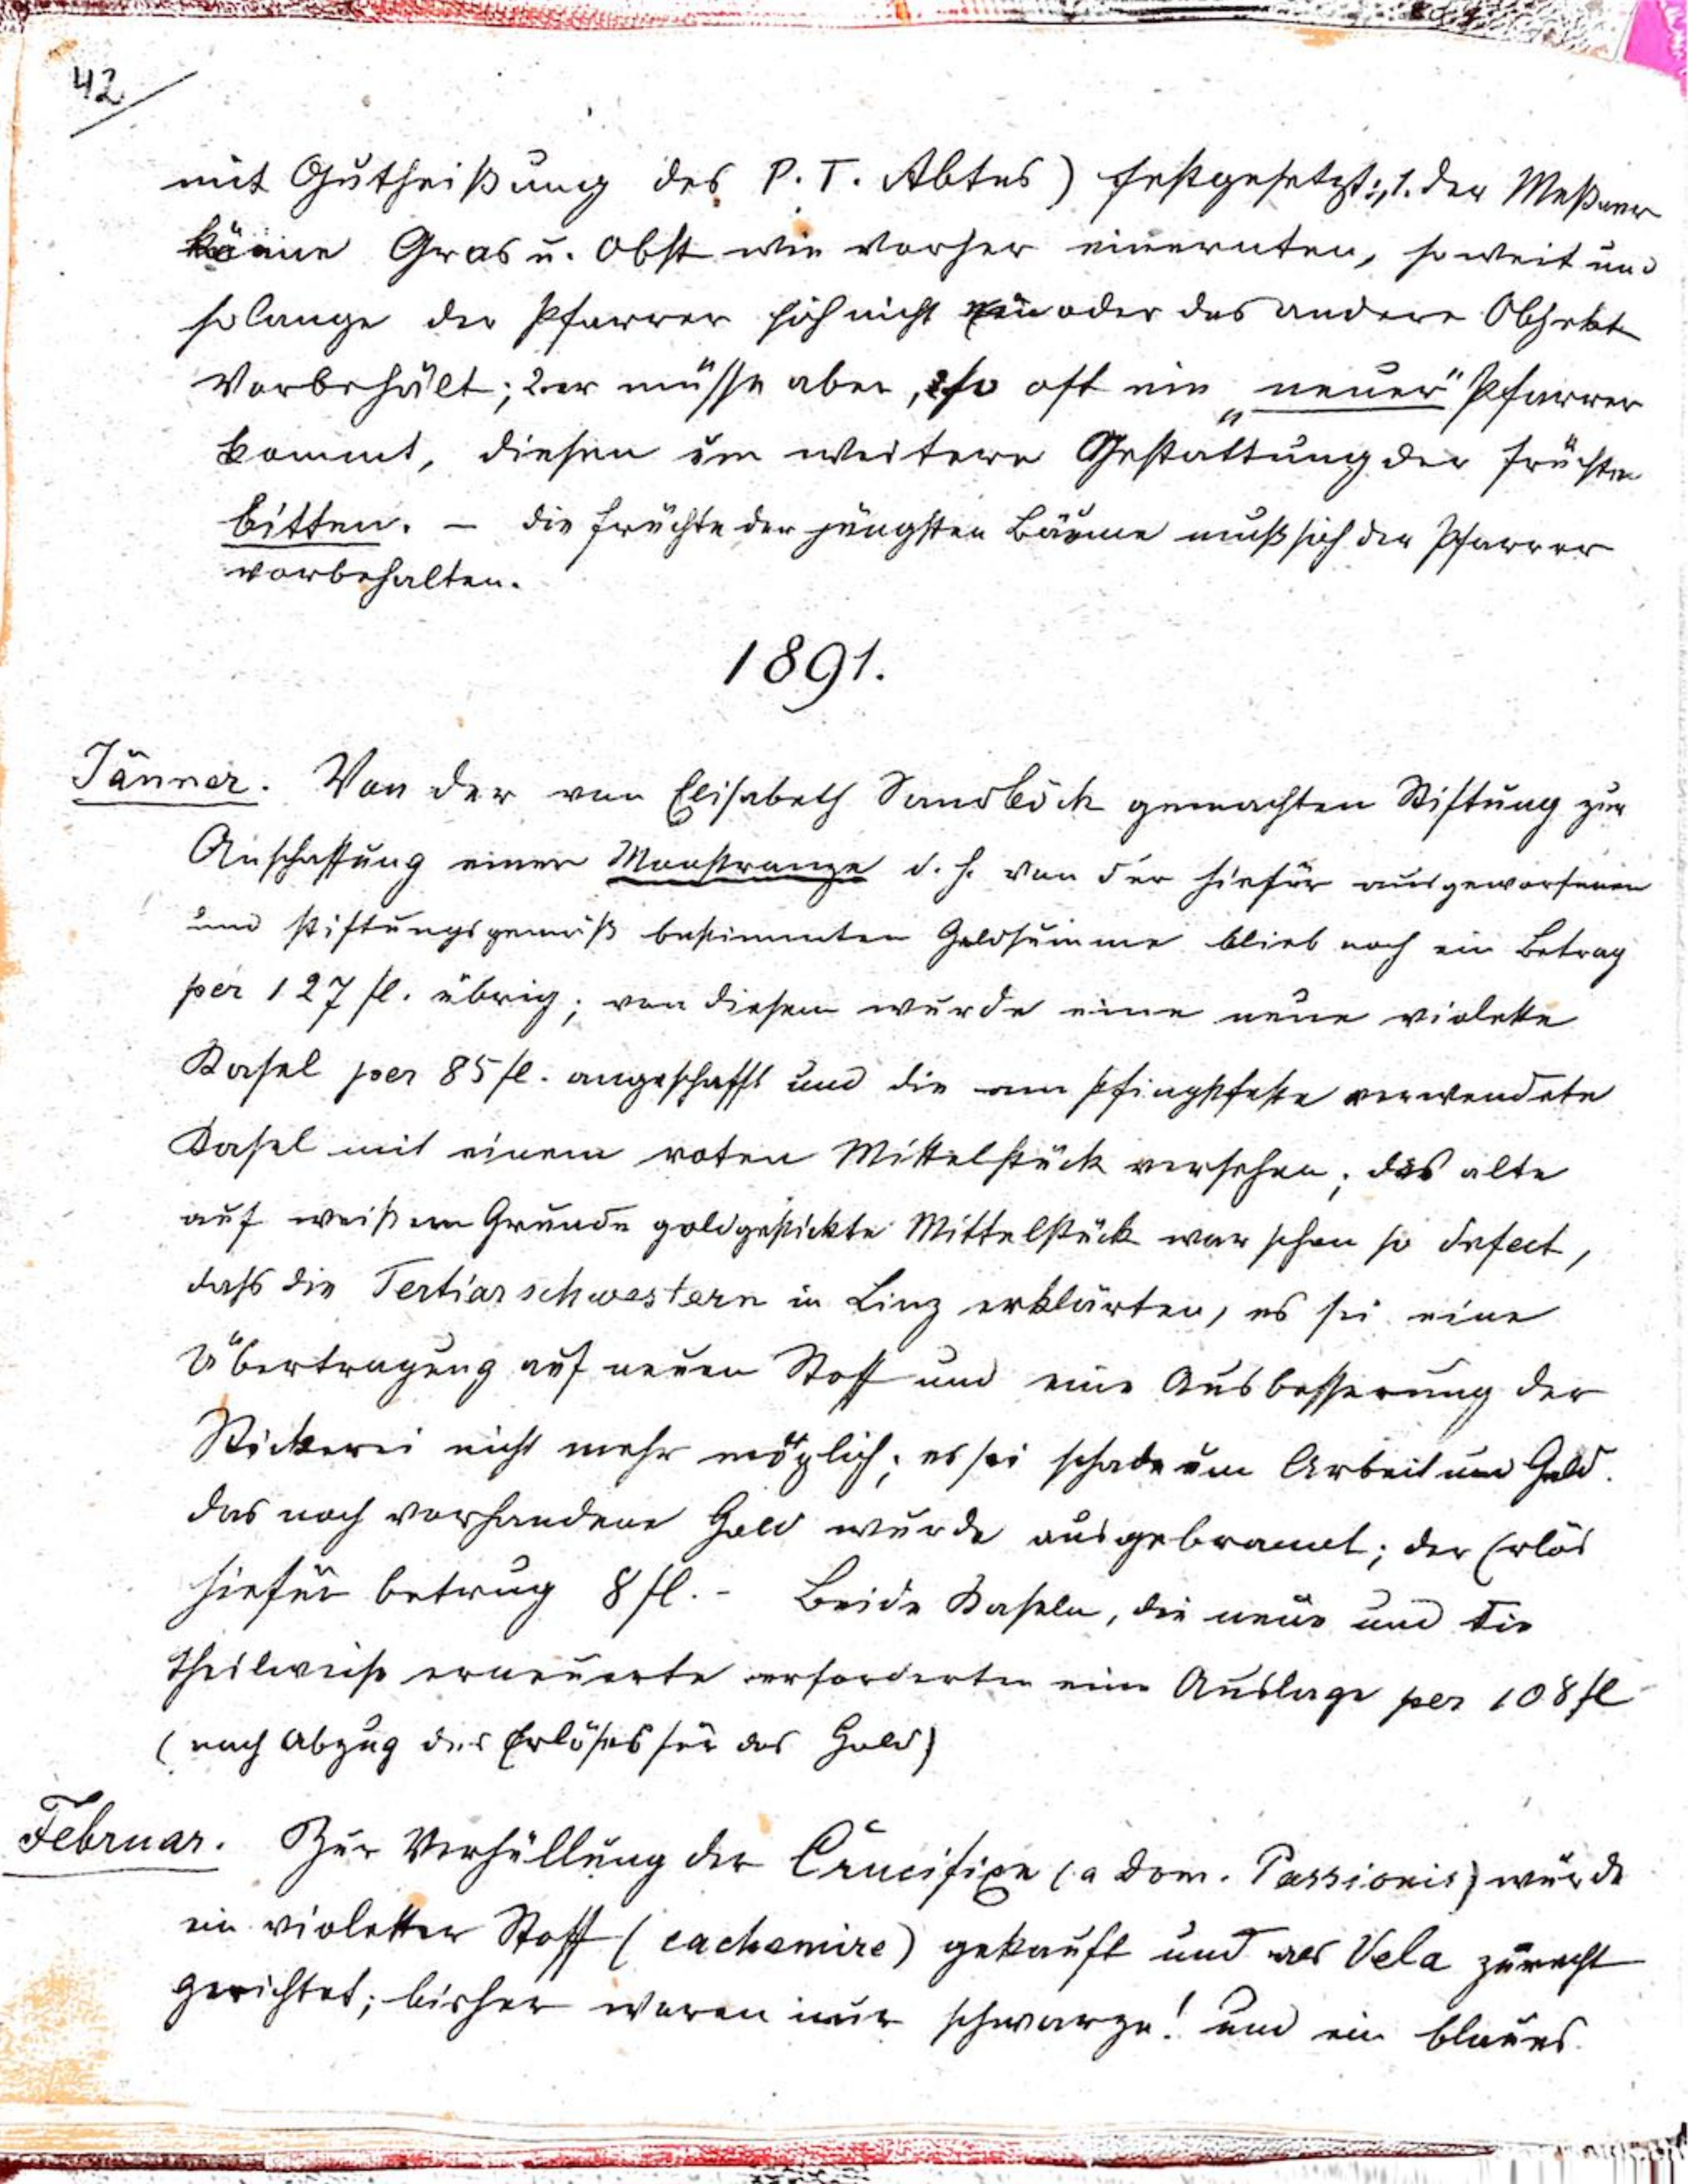 42
mit Gutheißung des P. T. Abtes) festgesetzt: „1. der Meßner
könne Gras u. Obst wie vorher einernten, so weit und
solange der Pfarrer sich nicht ein oder das andere Objekt
Vorbehält; 2. er müsse aber, so oft ein „neuer" Pfarrer
kommt, diesen um weitere Gestattung der Früchte
bitten. – die Früchte der jüngsten Bäume muß sich der Pfarrer
vorbehalten.
1891.
Jänner. Von der von Elisabeth Sandböck gemachten Stiftung zur
Anschaffung einer Monstranze d. h. von der hiefür ausgeworfenen
und stiftungsgemäß bestimmten Geldsumme blieb noch ein Betrag
per 127 fl. übrig; von diesem wurde eine neue violette
Kasel per 85 fl. angeschafft und die am Pfingstfeste verwendete
Kasel mit einem roten Mittelstück versehen; das alte
auf weißem Grunde goldgestickte Mittelstück war schon so defect,
dass die Tertiarschwestern in Linz erklärten, es sei eine
Übertragung auf neuen Stoff und eine Ausbesserung der
Stickerei nicht mehr möglich; es sei schade um Arbeit und Geld.
das noch vorhandene Gold wurde ausgebrannt; der Erlös
hiefür betrug 8 fl. – Beide Kaseln, die neue und die
theilweise erneuerte erforderten eine Auslage per 108 fl
(nach Abzug des Erlöses für das Gold)
Februar. Zur Verhüllung der Crucifixe (a Dom. Passionis) wurde
ein violetter Stoff (cachemire) gekauft und als Vela zurecht
gerichtet; bisher waren nur schwarze! und ein blaues